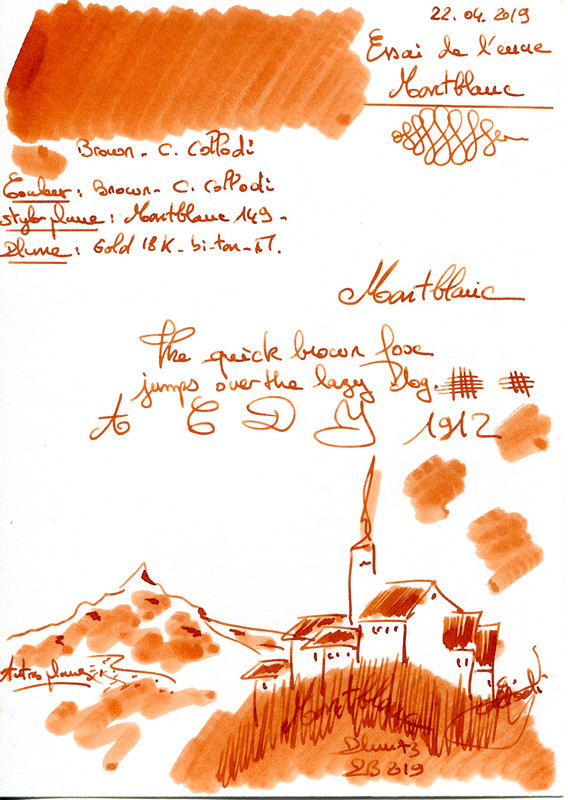 22.04.2019
Essai de l'encre
Montblanc
Brown - C. Collodi
Couleur : Brown - C. Collodi
stylo plume : Montblanc 149 -
Plume : Gold 18K - bi-ton - M.
Montblanc
The quick brown fox
jumps over the lazy Dog.
A C D Y 1912
Autres plumes
Montblanc
2019